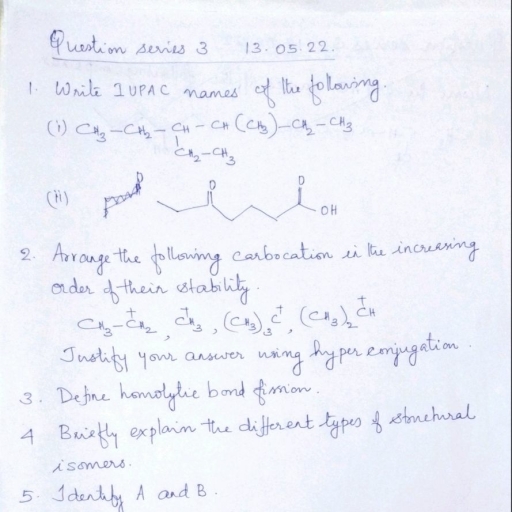 Question series 3 13.05.22.
1. Write IUPAC names of the following.
(i) CH3-CH2-CH-CH(CH3)-CH2-CH3
CH2-CH3
(ii)
O O
OH
2. Arrange the following carbocation in the increasing
order of their stability.
CH3-CH2+, CH3+, (CH3)3C+, (CH3)2CH+
Justify your answer using hyperconjugation.
3. Define homolytic bond fission.
4 Briefly explain the different types of structural
isomers.
5. Identify A and B.